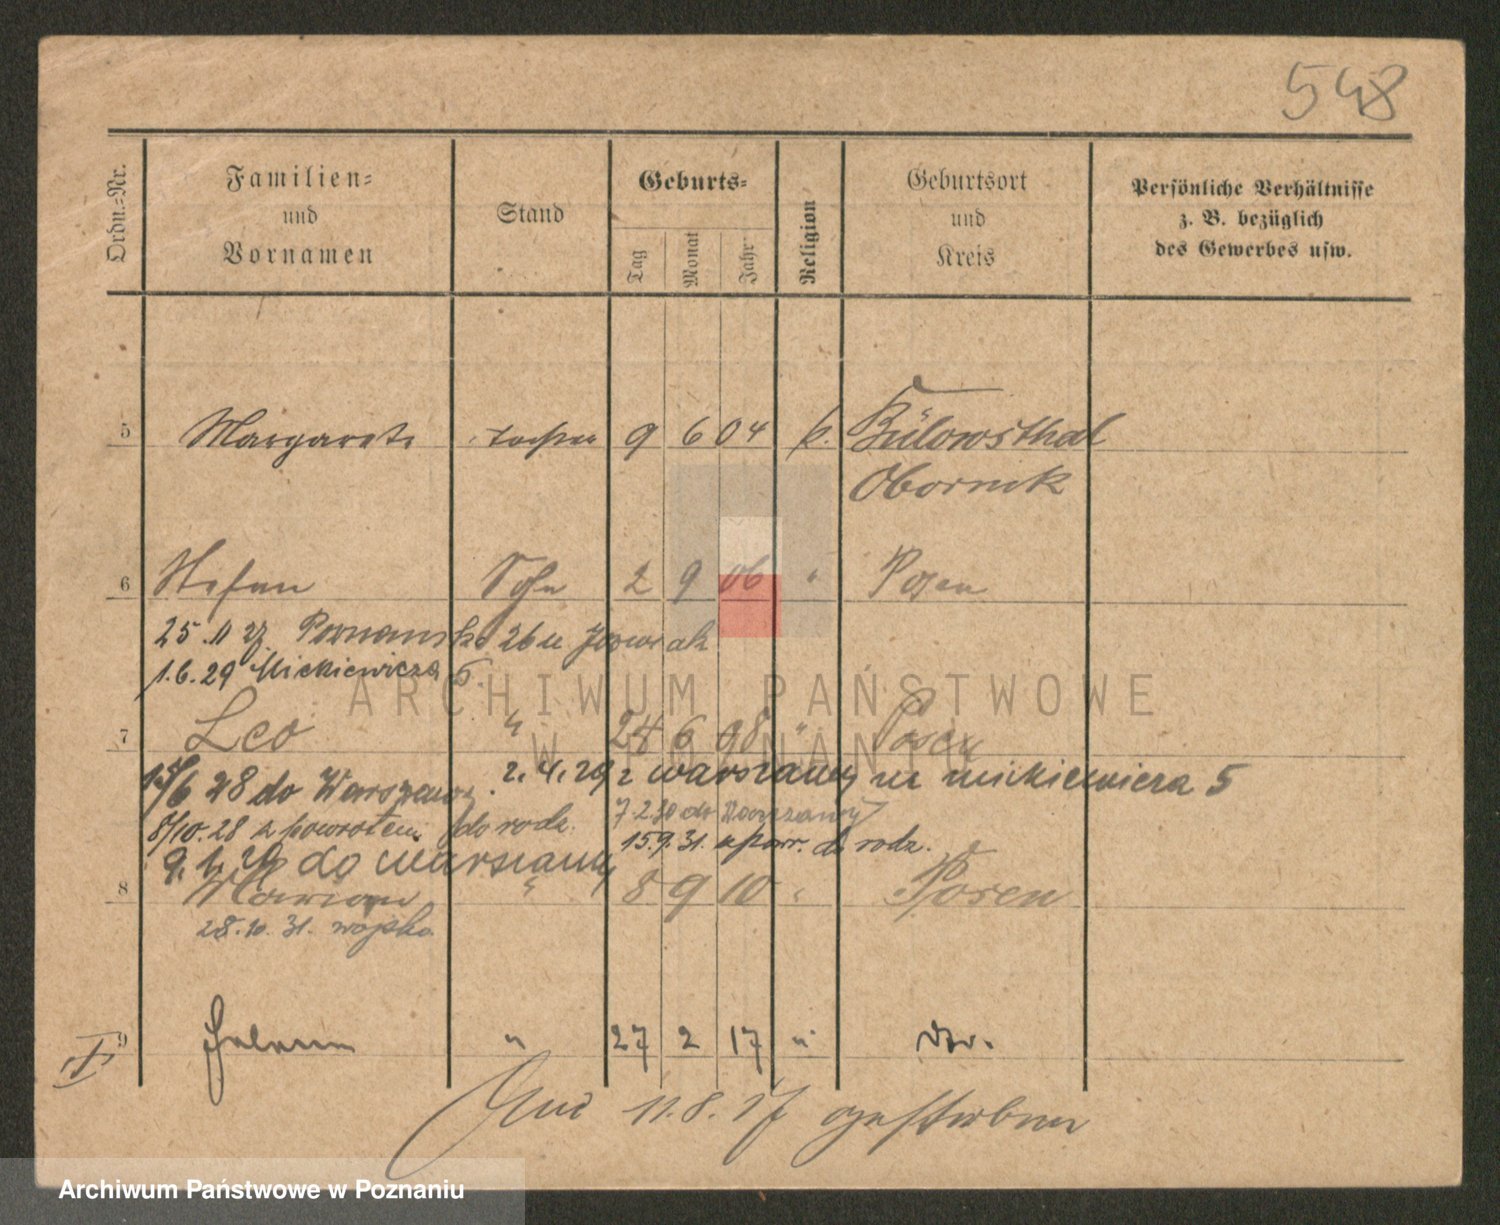 548
Ordn.-Nr.
Familien-
und
Vornamen
Stand
Geburts-
Tag
Monat
Jahr
Religion
Geburtsort
und
Kreis
Persönliche Verhältnisse
z. B. bezüglich
des Gewerbes usw.
5 Margarete Tochter 9 6 04 k. Bülowsthal
Obornik
6 Stefan Sohn 2 9 06 " Posen
25. 11 27 Poznańska 26 u
1.6.29 Mickiewicza 5.
7 Leo " 24 6 98 " Posen
15/6 28 do Warszawy. 2.4.29 z Warszawy ul Mickiewicza 5
8/10.28 z powrotem do rodz. 7.2.30 do Warszawy
15.9.31. z powr. do rodz.
9.1.29 do Warszawy
8 Marian " 8 9 10 " Posen
28.10.31. wojsko
9 " 27 2 17 " dto.
II
11.8.17 gestorben
ARCHIWUM PAŃSTWOWE
W POZNANIU
Archiwum Państwowe w Poznaniu